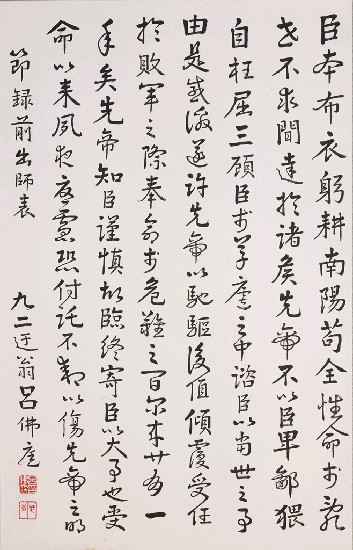 臣本布衣躬耕南陽苟全性命於亂
世不求聞達於諸侯先帝不以臣卑鄙猥
自枉屈三顧臣於草廬之中諮臣以當世之事
由是感激遂許先帝以馳驅後值傾覆受任
於敗軍之際奉命於危難之間爾來廿有一
年矣先帝知臣謹慎故臨終寄臣以大事也受
命以來夙夜憂慮恐付託不效以傷先帝之明
節録前出師表 九二迂翁呂佛庭